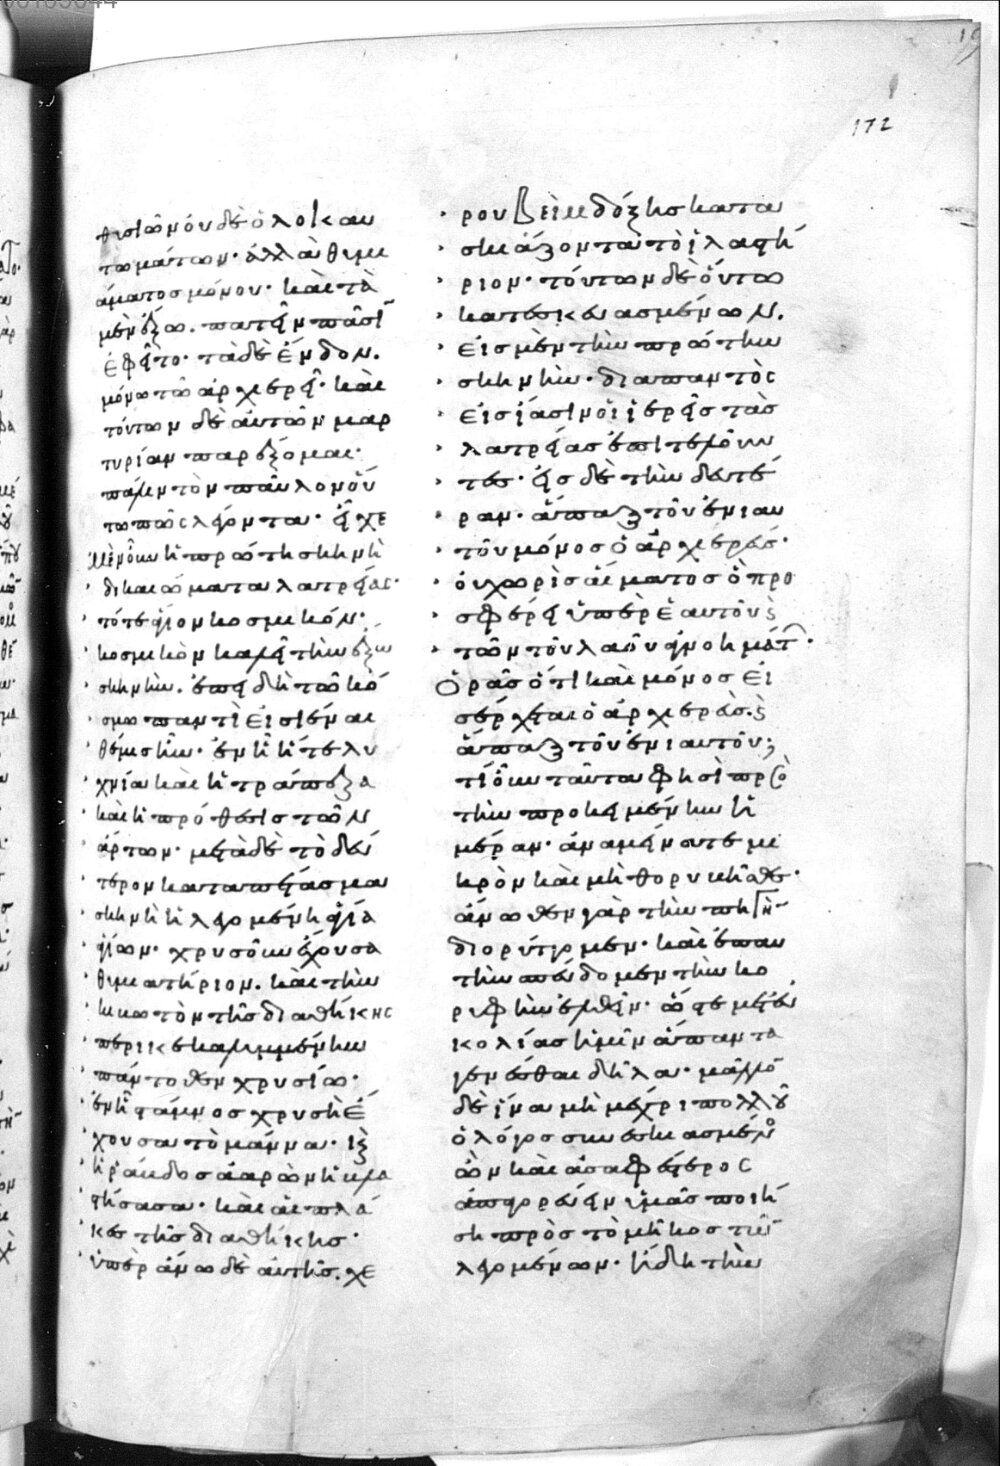 172
θυσιῶν οὐδὲ ὁλοκαυ
τωμάτων· ἀλλὰ θυμι
άματος μόνου· καὶ τὰ
μὲν ἔξω. πατεῖν πᾶσιν
ἐφεῖτο· τὰ δὲ ἔνδον.
μόνω τῶ ἀρχιερεῖ· καὶ
τούτων δὲ αὐτῶν μαρ
τυρίαν παρέξομαι·
πάλιν τὸν παῦλον οὑ
τωπῶς λέγοντα· εἶχε
μὲν οὖν ἡ πρώτη σκηνὴ
δικαιώματα λατρείας·
τότε ἅγιον κοσμικόν·
κοσμικὸν καλεῖ τὴν ἔξω
σκηνὴν. ἐπειδὴ τῶ κό
σμω παντὶ εἰσιέναι
θέμις ἦν· ἐν ἧ ἥ τε λυ
χνία καὶ ἡ τράπεζα
καὶ ἡ πρόθεσις τῶν
ἄρτων· μετὰ δὲ τὸ δεύ
τερον καταπέτασμα
σκηνὴ ἡ λεγομένη ἅγια
ἁγίων· χρυσοῦν ἔχουσα
θυμιατήριον. καὶ τὴν
κιβωτὸν τῆς διαθήκης
περικεκαλυμμένην
πάντοθεν χρυσίω·
ἐν ἧ στάμνος χρυσῆ ἔ
χουσα τὸ μάννα· καὶ
ἡ ῥάβδος ἀαρὼν ἡ βλα
στήσασα· καὶ αἱ πλά
κες τῆς διαθήκης·
ὑπεράνω δὲ αὐτῆς. χε
ρουβεὶμ δόξης κατα
σκιάζοντα τὸ ἱλαστή
ριον· τούτων δὲ οὕτω
κατεσκευασμένων.
εἰς μὲν τὴν πρώτην
σκηνὴν· διαπαντὸς
εἰσίασιν οἱ ἱερεῖς τὰς
λατρείας ἐπιτελοῦν
τες· εἰς δὲ τὴν δευτέ
ραν· ἅπαξ τοῦ ἐνιαυ
τοῦ μόνος ὁ ἀρχιερεύς·
οὐ χωρὶς αἵματος ὃ προ
σφέρει ὑπὲρ ἑαυτοῦ καὶ
τῶν τοῦ λαοῦ ἀγνοημάτων·
Ὁρᾶς ὅτι καὶ μόνος εἰ
σέρχεται ὁ ἀρχιερεὺς. καὶ
ἅπαξ τοῦ ἐνιαυτοῦ;
τί οὖν ταῦτα φησὶ πρὸς
τὴν προκειμένην ἡ
μέραν· ἀναμείνατε μι
κρὸν καὶ μὴ θορυβῆσθε·
ἄνωθεν γὰρ τὴν πηγὴν
διορύττομεν· καὶ ἐπὶ
τὴν σπεύδομεν τὴν κο
ρυφὴν ἐλθεῖν· ὥστε μετ' εὐ
κολίας ἡμῖν ἅπαντα
γενέσθαι δῆλα· μᾶλλον
δὲ ἵνα μὴ μέχρι πολλοῦ
ὁ λόγος συνεσκιασμένος
ὢν καὶ ἀσαφέστερος
ἀπαγορεύειν ὑμᾶς ποιή
ση πρὸς τὸ μῆκος τῶν
λεγομένων· ἤδη τὴν